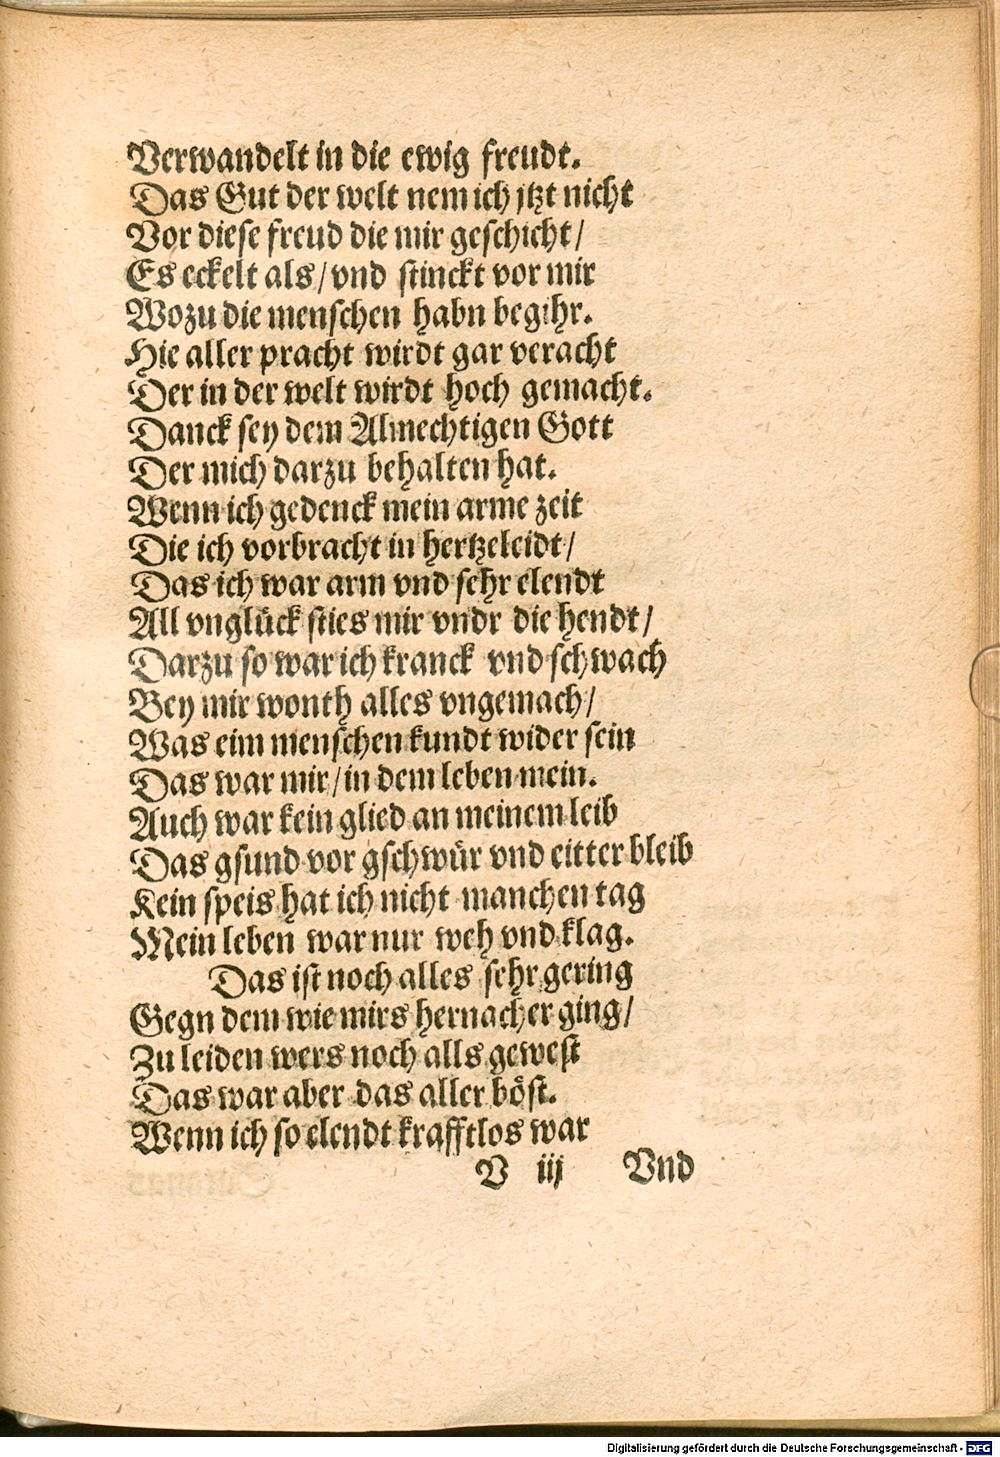 Verwandelt in die ewig freudt.
Das Gut der welt nem ich jtzt nicht
Vor diese freud die mir geschicht/
Es eckelt als/vnd stinckt vor mir
Wozu die menschen habn begihr.
Hie aller pracht wirdt gar veracht
Der in der welt wirdt hoch gemacht.
Danck sey dem Almechtigen Gott
Der mich darzu behalten hat.
Wenn ich gedenck mein arme zeit
Die ich vorbracht in hertzeleidt/
Das ich war arm vnd sehr elendt
All vnglück sties mir vndr die hendt/
Darzu so war ich kranck vnd schwach
Bey mir wonth alles vngemach/
Was eim menschen kundt wider sein
Das war mir/in dem leben mein.
Auch war kein glied an meinem leib
Das gsund vor gschwür vnd eitter bleib
Kein speis hat ich nicht manchen tag
Mein leben war nur weh vnd klag.
Das ist noch alles sehr gering
Gegn dem wie mirs hernacher ging/
Zu leiden wers noch alls gewest
Das war aber das aller böst.
Wenn ich so elendt krafftlos war
V iij Vnd
Digitalisierung gefördert durch die Deutsche Forschungsgemeinschaft - DFG